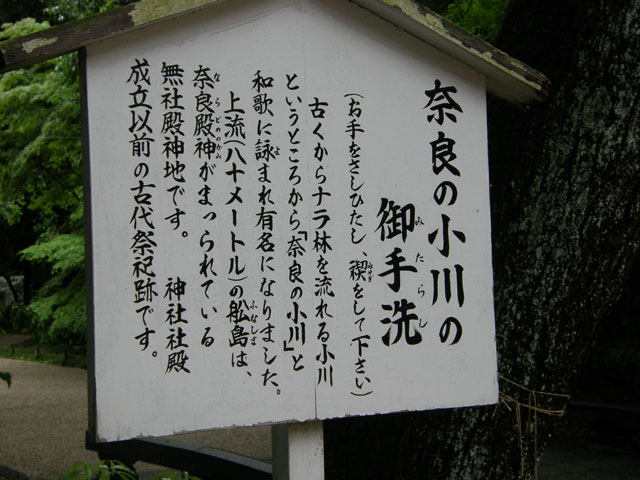 奈良の小川の
御手洗
みたらし
(お手をさしひたし、禊をして下さい)
みそぎ
古くからナラ林を流れる小川
というところから「奈良の小川」と
和歌に詠まれ有名になりました。
よ
上流(八十メートル)の舩島は、
ふなしま
奈良殿神がまつられている
ならどののかみ
無社殿神地です。 神社社殿
成立以前の古代祭祀跡です。